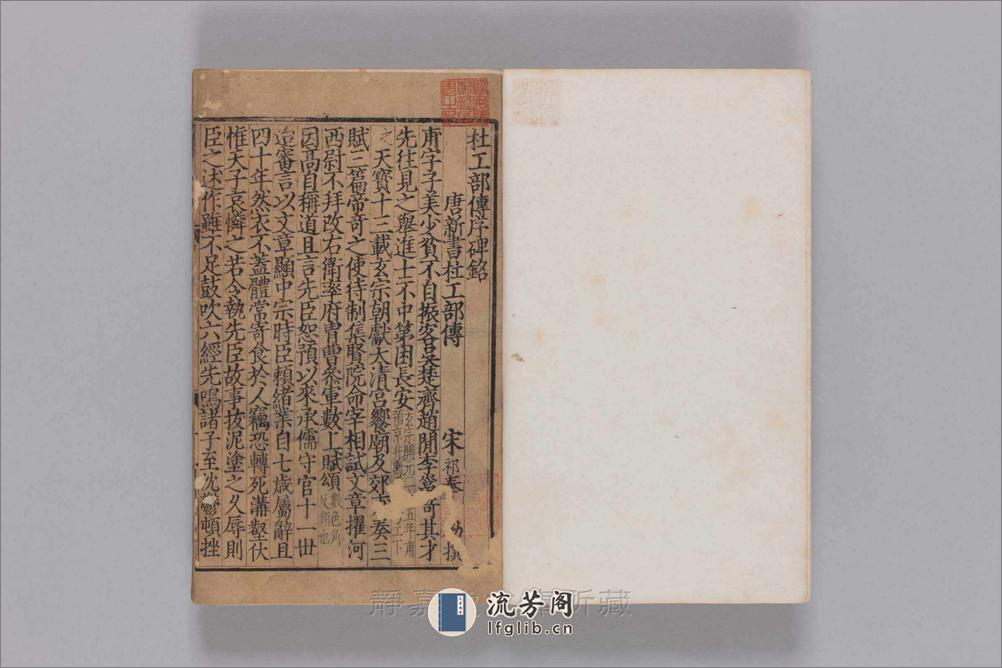 杜工部傳序碑銘
唐新書杜工部傳 宋祁奉 撰
甫字子美少貧不自振客吳楚齊趙間李邕奇其才
先往見之舉進士不中第困長安
之天寶十三載玄宗朝獻大清宮饗廟及郊 奏三
賦三篇帝奇之使待制集賢院命宰相試文章擢河
西尉不拜改右衛率府胄曹叅軍數上賦頌
因高自稱道且言先臣恕預以來承儒守官十一世
迨審言以文章顯中宗時臣賴緒業自七歲屬辭且
四十年然衣不蓋體常寄食於人竊恐轉死溝壑伏
惟天子哀憐之若令執先臣故事拔泥塗之久辱則
臣之述作雖不足鼓吹六經先鳴諸子至沈鬱頓挫
靜嘉 所藏
流芳阁
lfglib.cn